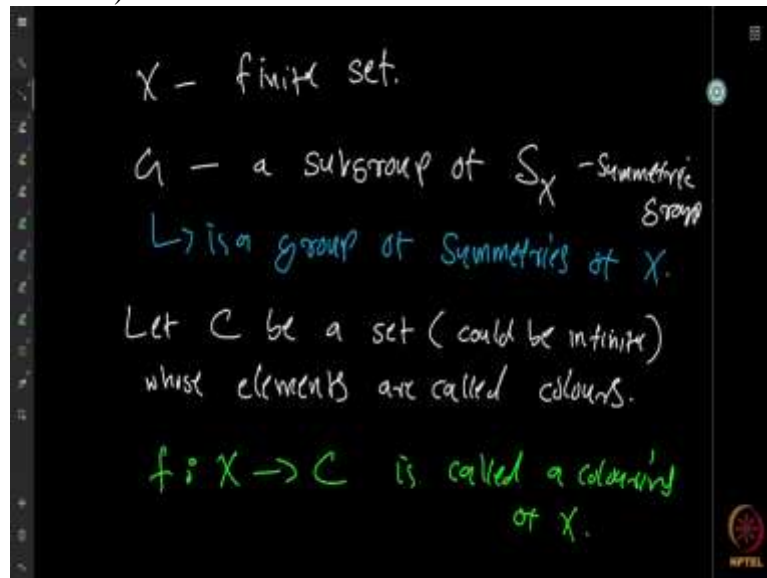 X - finite set.
G - a subgroup of S_X - Symmetric
group
↳ is a group of symmetries of X.
Let C be a set (could be infinite)
whose elements are called colours.
f : X -> C is called a colouring
of X.
NPTEL